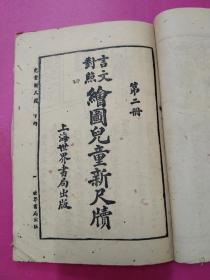 第二冊
言文
對照
繪圖兒童新尺牘
上海世界書局出版